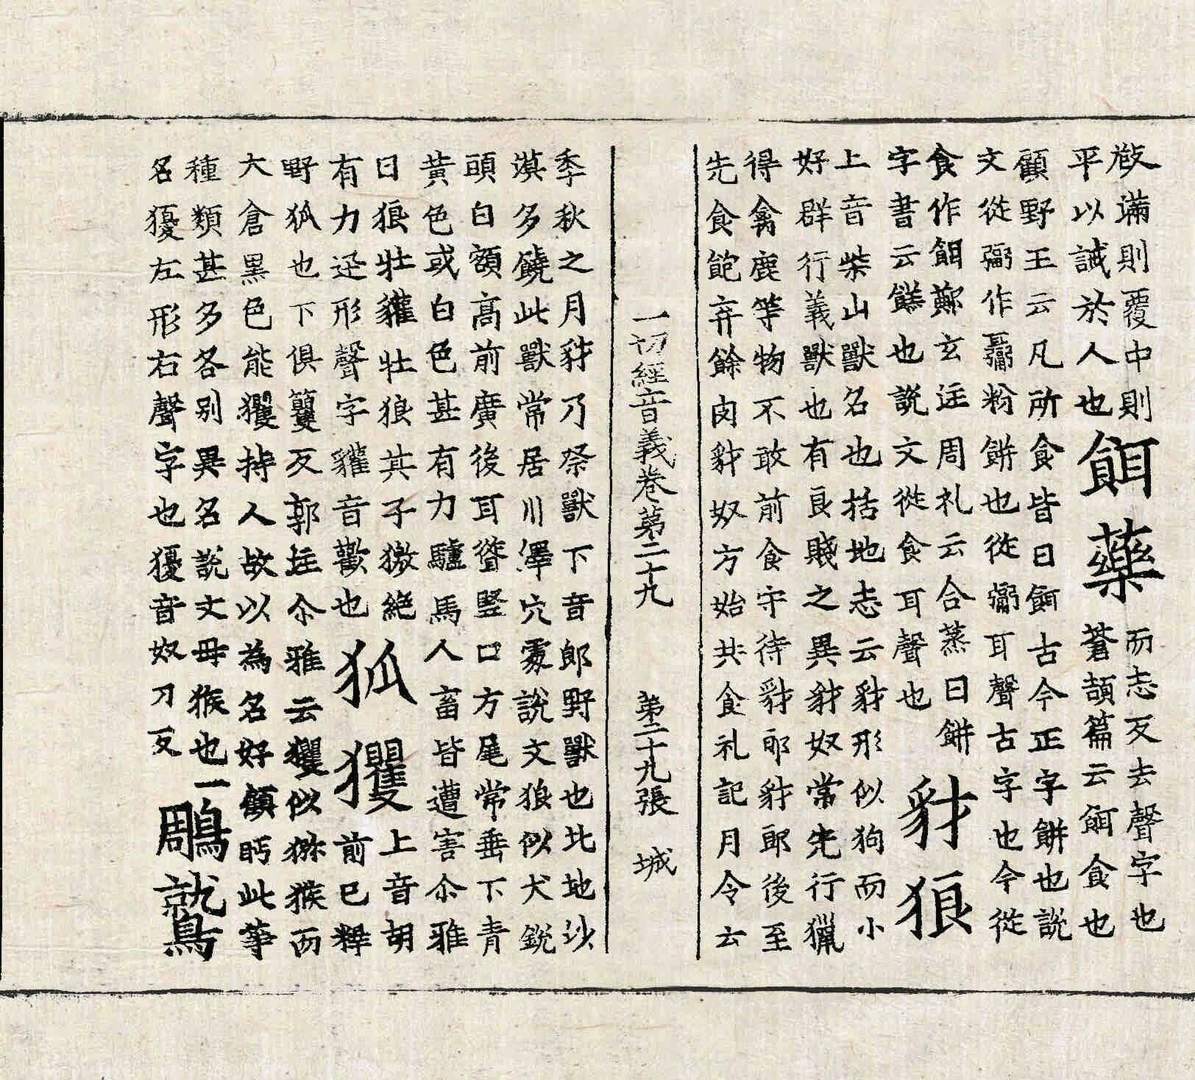 敧滿則覆中則
平以誡於人也
餌藥
而志反去聲字也
蒼頡篇云餌食也
顧野王云凡所食皆曰餌古今正字餅也說
文從䰜作𩱧粉餅也從䰜耳聲古字也今從
食作餌鄭玄注周礼云合蒸曰餅
字書云餻也說文從食耳聲也
豺狼
上音柴山獸名也括地志云豺形似狗而小
好群行義獸也有良賤之異豺奴常先行獵
得禽鹿等物不敢前食守待豺耶豺郎後至
先食飽弃餘肉豺奴方始共食礼記月令云
一切經音義卷第二十九 第二十九張 城
季秋之月豺乃祭獸下音郎野獸也北地沙
漠多饒此獸常居川澤穴處說文狼似犬銳
頭白額高前廣後耳聳豎口方尾常垂下青
黃色或白色甚有力驢馬人畜皆遭害尒雅
曰狼牡貛牡狼其子獥絕
有力迅形聲字貛音歡也
狐玃
上音胡
前已釋
野狐也下俱籰反郭注尒雅云玃似猕猴而
大倉黑色能玃持人故以為名好顧眄此等
種類甚多各别異名說文母猴也一
名獶左形右聲字也獶音奴刀反
鵰鷲